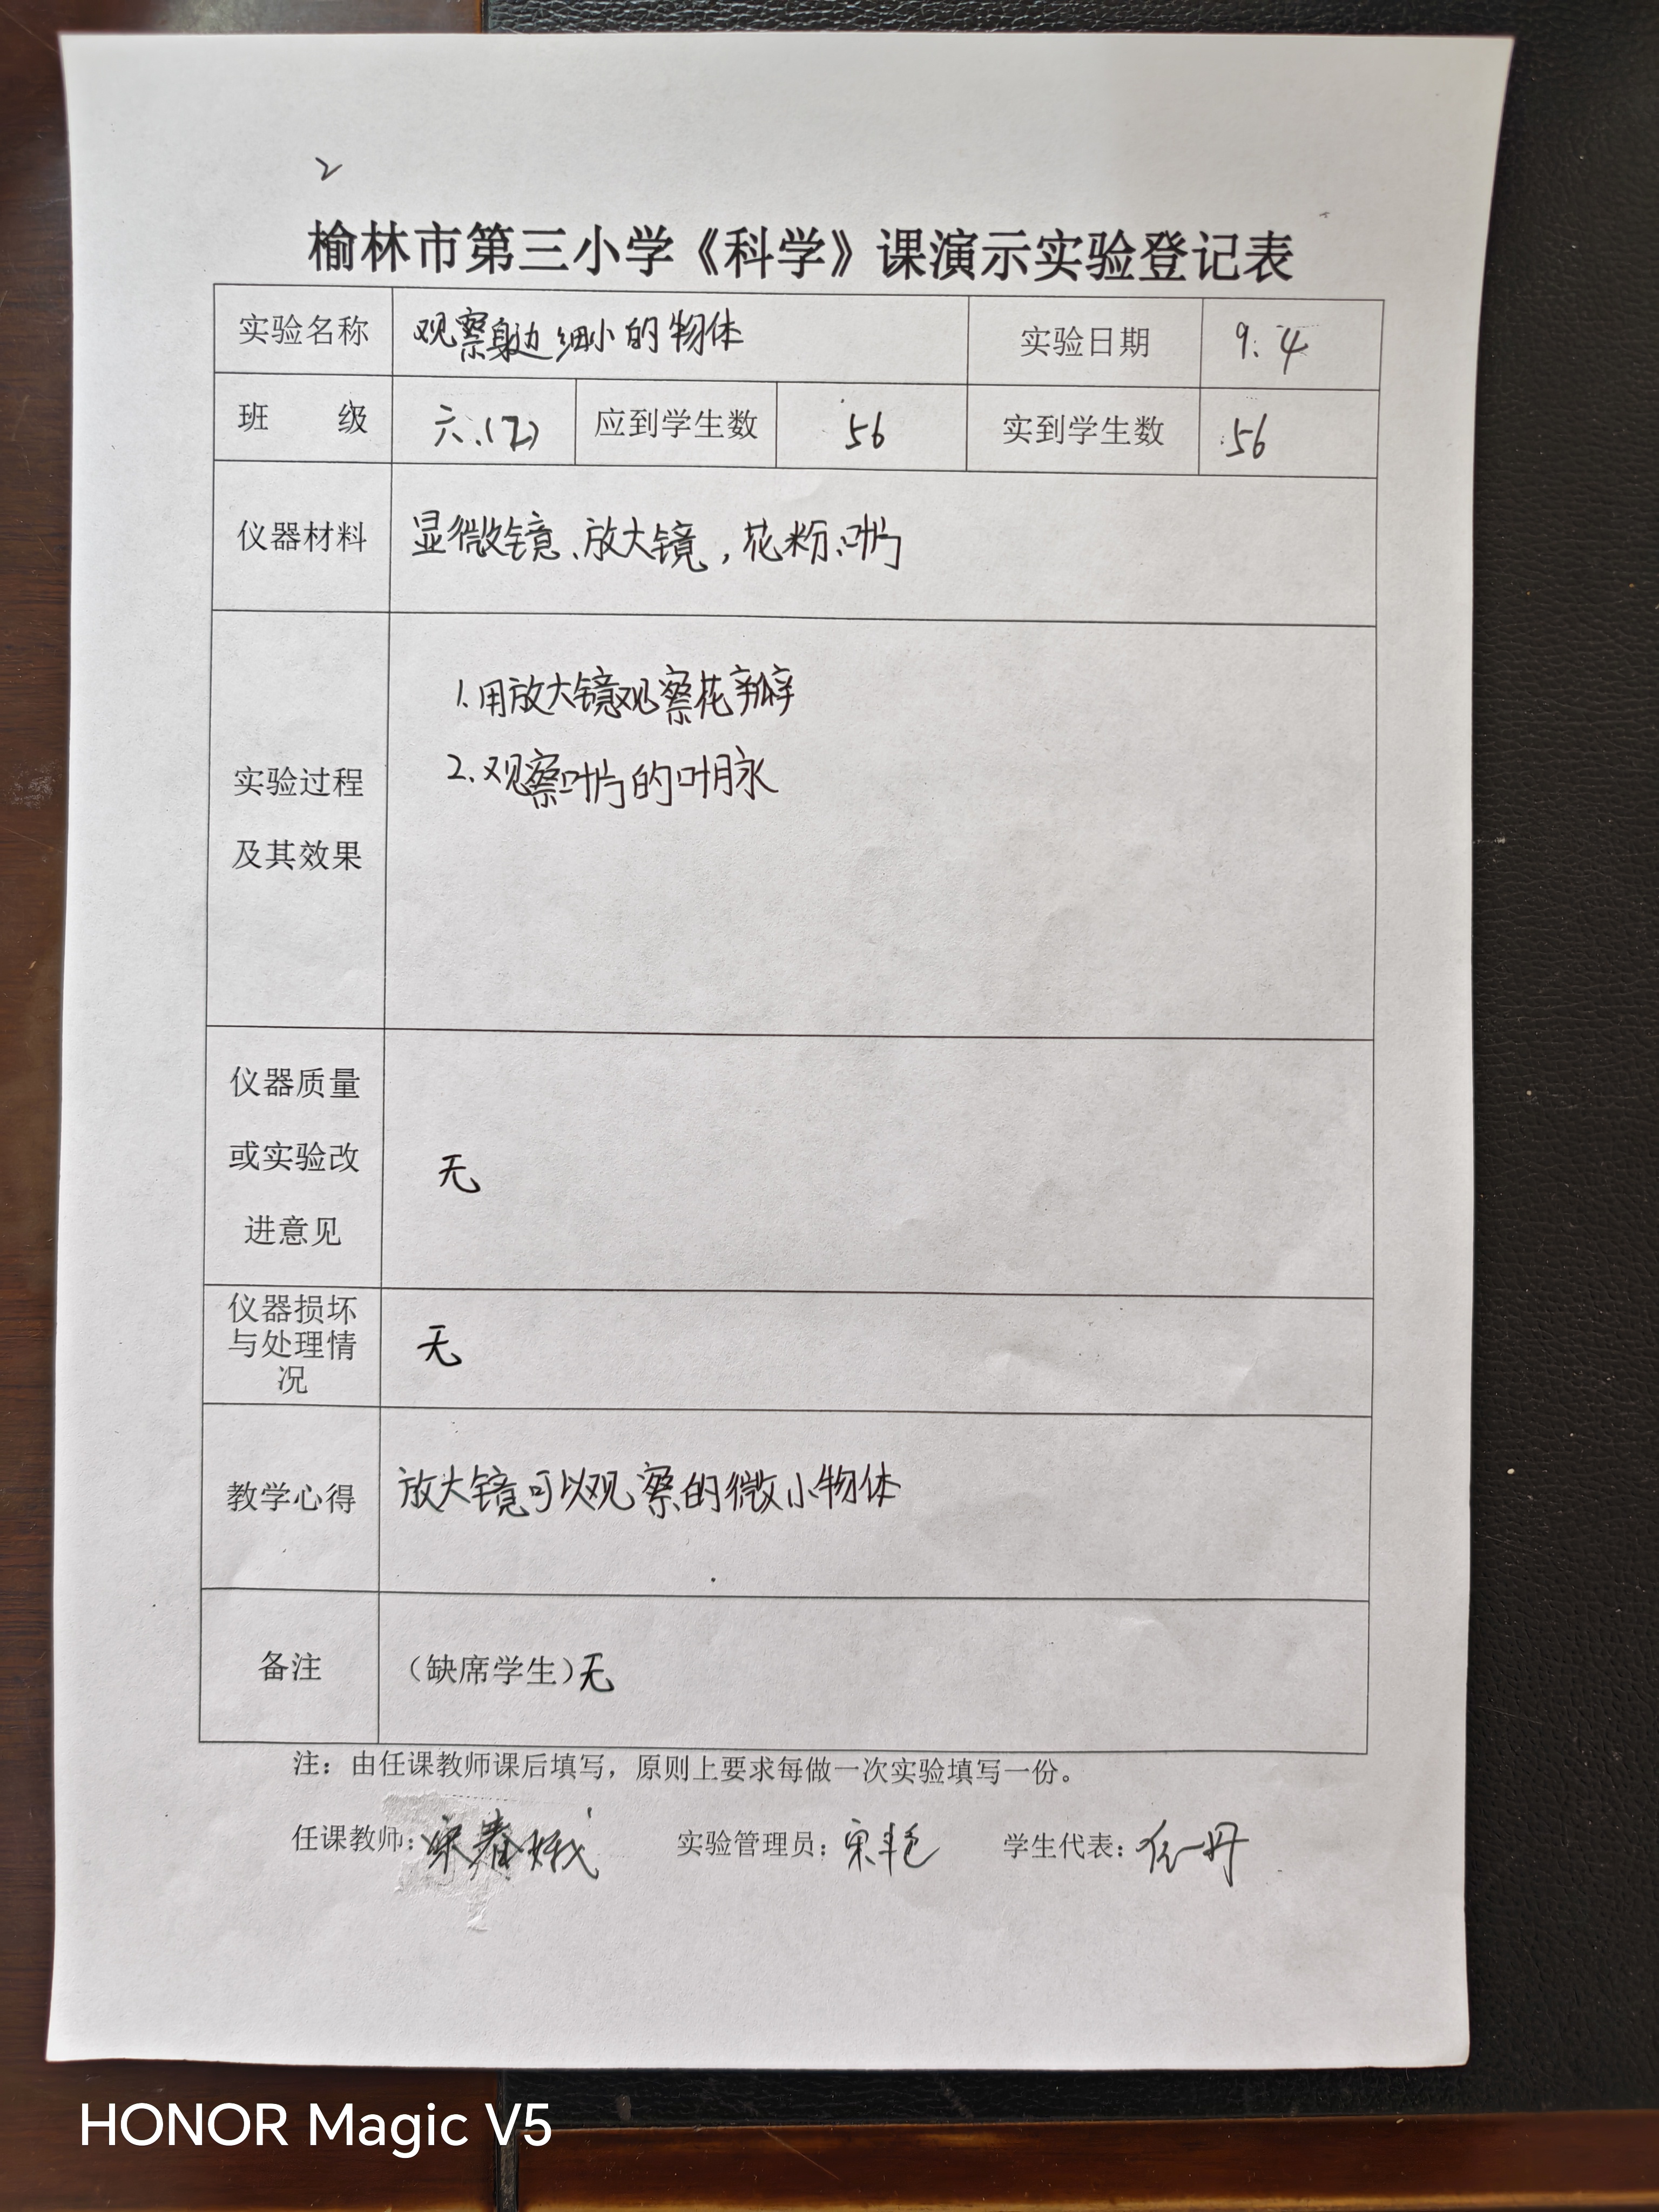 2
榆林市第三小学《科学》课演示实验登记表
实验名称 观察身边细小的物体 实验日期 9.4
班 级 六.(2) 应到学生数 56 实到学生数 56
仪器材料 显微镜、放大镜，花粉、叶片
1.用放大镜观察花瓣
2.观察叶片的叶脉
实验过程
及其效果
仪器质量
或实验改
进意见
无
仪器损坏
与处理情
况
无
教学心得 放大镜可以观察的微小物体
备注 （缺席学生）无
注：由任课教师课后填写，原则上要求每做一次实验填写一份。
任课教师：宋春娥 实验管理员：宋艳 学生代表：任一丹
HONOR Magic V5